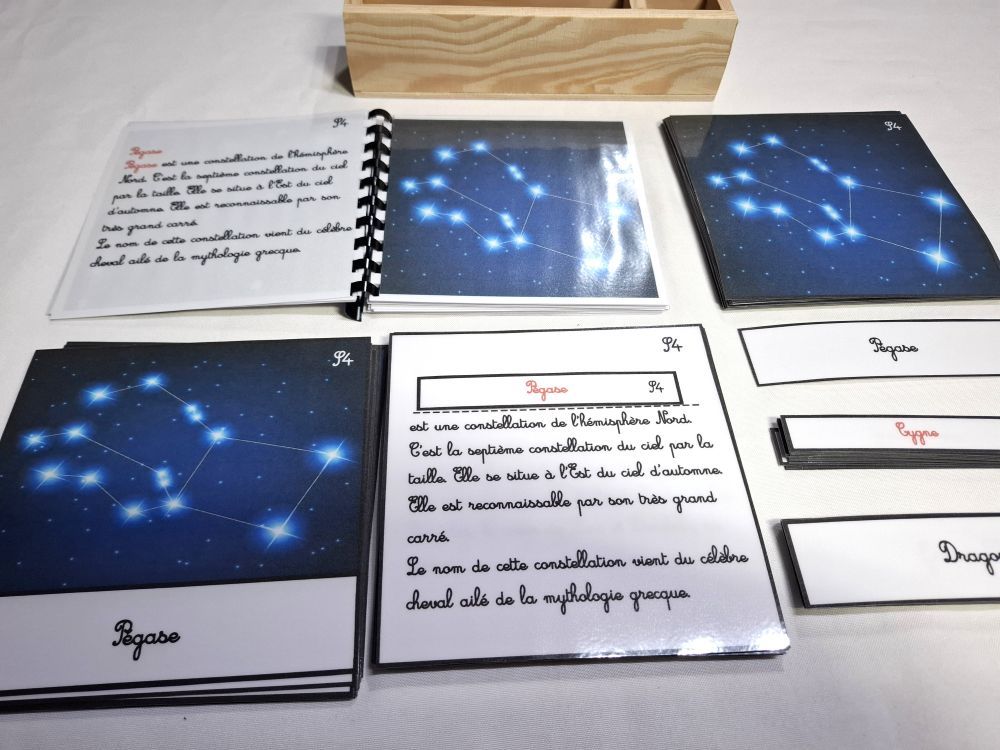 S4
Pégase
Pégase est une constellation de l'hémisphère
Nord. C'est la septième constellation du ciel
par la taille. Elle se situe à l'Est du ciel
d'automne. Elle est reconnaissable par son
très grand carré.
Le nom de cette constellation vient du célèbre
cheval ailé de la mythologie grecque.
S4
S4
Pégase
S4
Pégase S4
est une constellation de l'hémisphère Nord.
C'est la septième constellation du ciel par la
taille. Elle se situe à l'Est du ciel d'automne.
Elle est reconnaissable par son très grand
carré.
Le nom de cette constellation vient du célèbre
cheval ailé de la mythologie grecque.
Pégase
Cygne
Drago